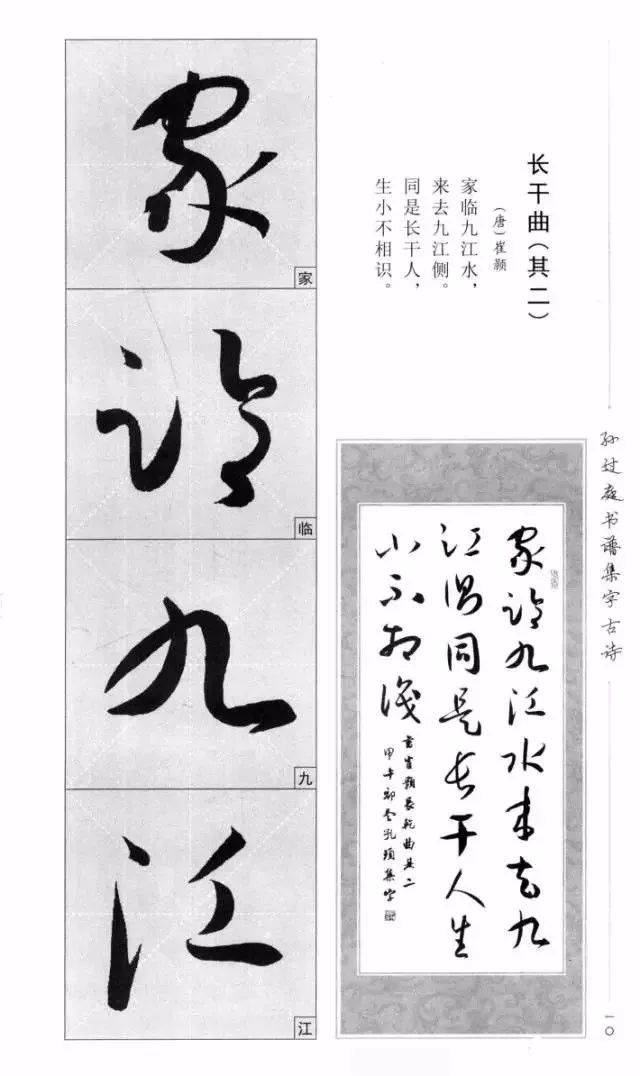 长干曲(其二)
(唐)崔颢
家临九江水,
来去九江侧。
同是长干人,
生小不相识。
孙过庭书谱集字古诗
家临九江水来去九
江侧同是长干人生
小不相识
书崔颢长干曲其二
家
家
临
临
九
九
江
江
一〇